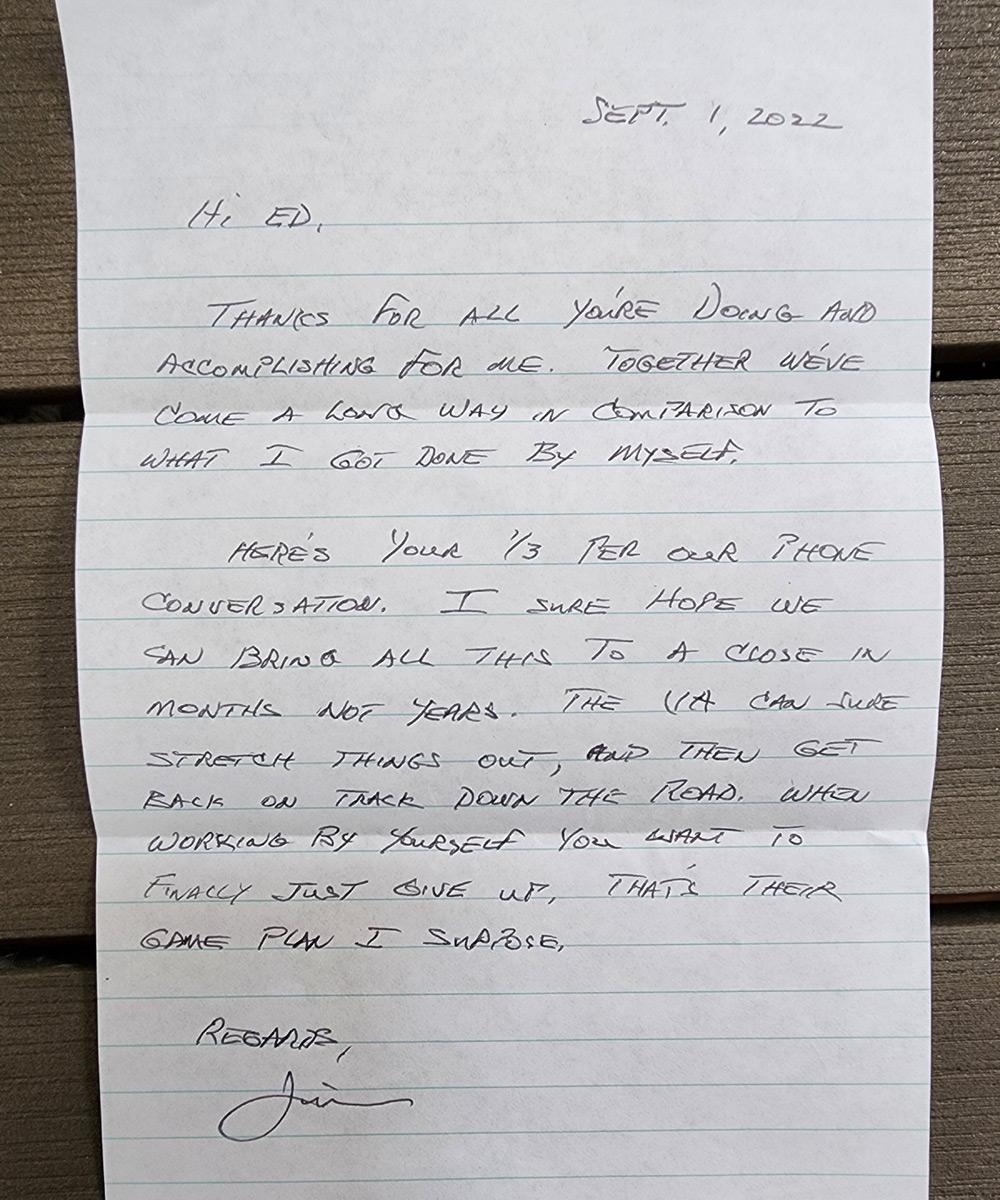 SEPT. 1, 2022
Hi ED,
THANKS FOR ALL YOU'RE DOING AND
ACCOMPLISHING FOR ME. TOGETHER WE'VE
COME A LONG WAY IN COMPARISON TO
WHAT I GOT DONE BY MYSELF.
HERE'S YOUR 1/3 PER OUR PHONE
CONVERSATION. I SURE HOPE WE
CAN BRING ALL THIS TO A CLOSE IN
MONTHS NOT YEARS. THE VA CAN SURE
STRETCH THINGS OUT, AND THEN GET
BACK ON TRACK DOWN THE ROAD. WHEN
WORKING BY YOURSELF YOU WANT TO
FINALLY JUST GIVE UP, THAT'S THEIR
GAME PLAN I SUPPOSE.
REGARDS,
Jim